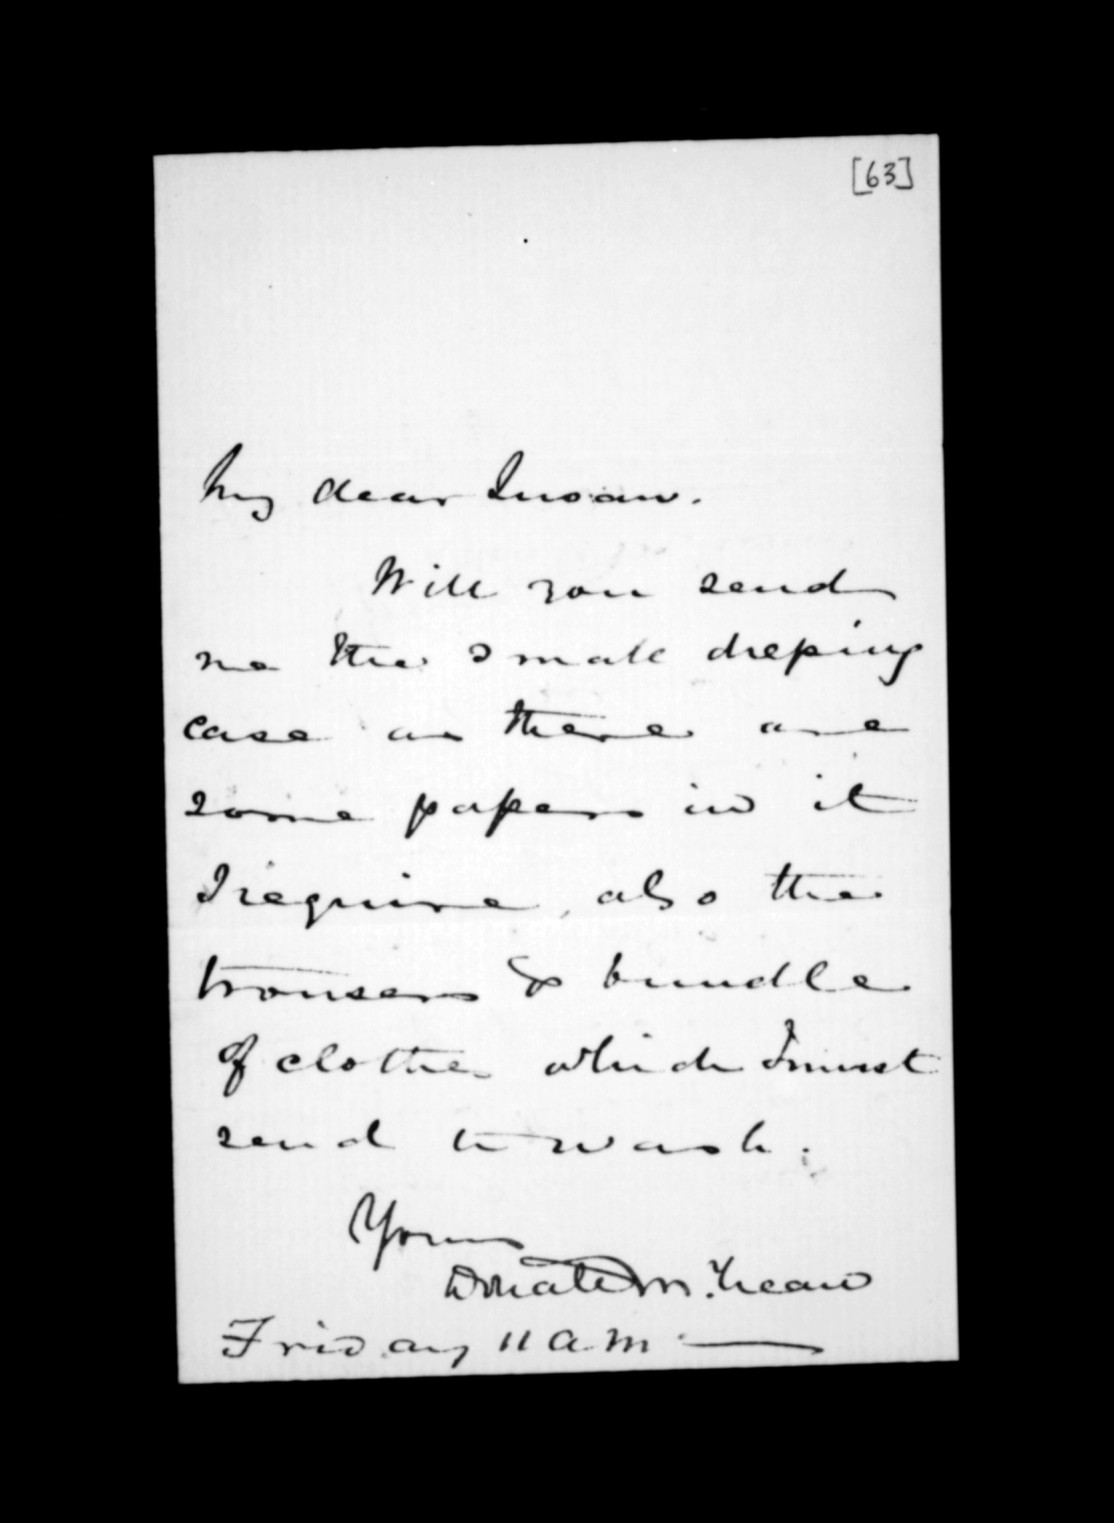 [63]
My dear Susan.
Will you send
me the small dressing
case as there are
some papers in it
I require, also the
trousers & bundle
of clothes which I must
send to wash.
Yours
Donald McLean
Friday 11 AM